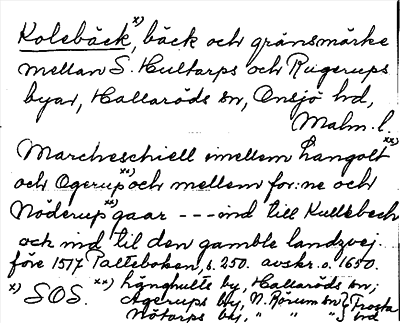 Kolebäck,x) bäck och gränsmärke
mellan S. Hultarps och Rugerups
byar, Hallaröds sn, Onsjö hd,
Malm. l.
Marcheschiell imellem hangolt xx)
och Ogerup xx) och mellem for:ne och
Nöderup xx) gaar --- ind till Kullebech
och ind til den gamble landzvej...
före 1517 Palteboken, s. 250. avskr. o. 1650.
x) SOS. xx) hänghults by, Hallaröds sn;
Agerups by, N. Rörum sn } Frosta
Nötarps by, " " " } hd